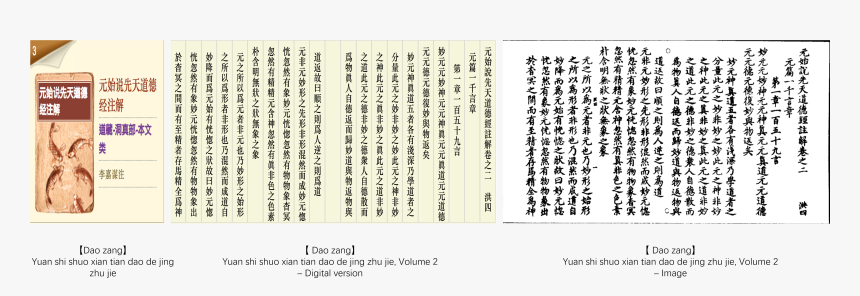 3
元始说先天道德
经注解
元始说先天道德
经注解
道藏·洞真部·本文
类
李嘉谋注
元始說先天道德經註解卷之二 洪四
元篇一千言章
第一章一百五十九言
妙元元妙神元元神真元元真道元元道德
元元德元德復妙與物返矣
妙元神真道五者各有淺深乃學道者之
分量此元之妙非妙之妙此元之神非妙
之神此元之真非妙之真此元之道非妙
之道此元之德非妙之德衆人自德散而
為物真人自德返而歸妙道與物返物與
道返故曰順之則為人逆之則為道
元非元妙形之先形非形混然而成妙元惚
恍忽然有象妙元恍惚忽然有物物象杳冥
忽然有精精元含神忽然有真非色之色素
朴含明無狀之狀無象之象
元之所以為元者非元也乃妙形之始形
之所以為形者非形也乃混然而成道自
妙降而為元始有恍惚之狀故曰妙元惚
恍忽然有象妙元恍惚忽然有物物象出
於杳冥之間而有至精者存焉精全為神
元始說先天道德經註解卷之二 洪四
元篇一千言章
第一章一百五十九言
妙元元妙神元元神真元元真道元元道德
元元德元德復妙與物返矣
妙元神真道五者各有淺深乃學道者之
分量此元之妙非妙之妙此元之神非妙
之神此元之真非妙之真此元之道非妙
之道此元之德非妙之德衆人自德散而
為物真人自德返而歸妙道與物返物與
道返故曰順之則為人逆之則為道
元非元妙形之先形非形混然而成妙元惚
恍忽然有象妙元恍惚忽然有物物象杳冥
忽然有精精元含神忽然有真非色之色素
朴含明無狀之狀無象之象
元之所以為元者非元也乃妙形之始形
之所以為形者非形也乃混然而成道自
妙降而為元始有恍惚之狀故曰妙元惚
恍忽然有象妙元恍惚忽然有物物象出
於杳冥之間而有至精者存焉精全為神
【Dao zang】
Yuan shi shuo xian tian dao de jing
zhu jie
【 Dao zang】
Yuan shi shuo xian tian dao de jing zhu jie, Volume 2
– Digital version
【 Dao zang】
Yuan shi shuo xian tian dao de jing zhu jie, Volume 2
– Image